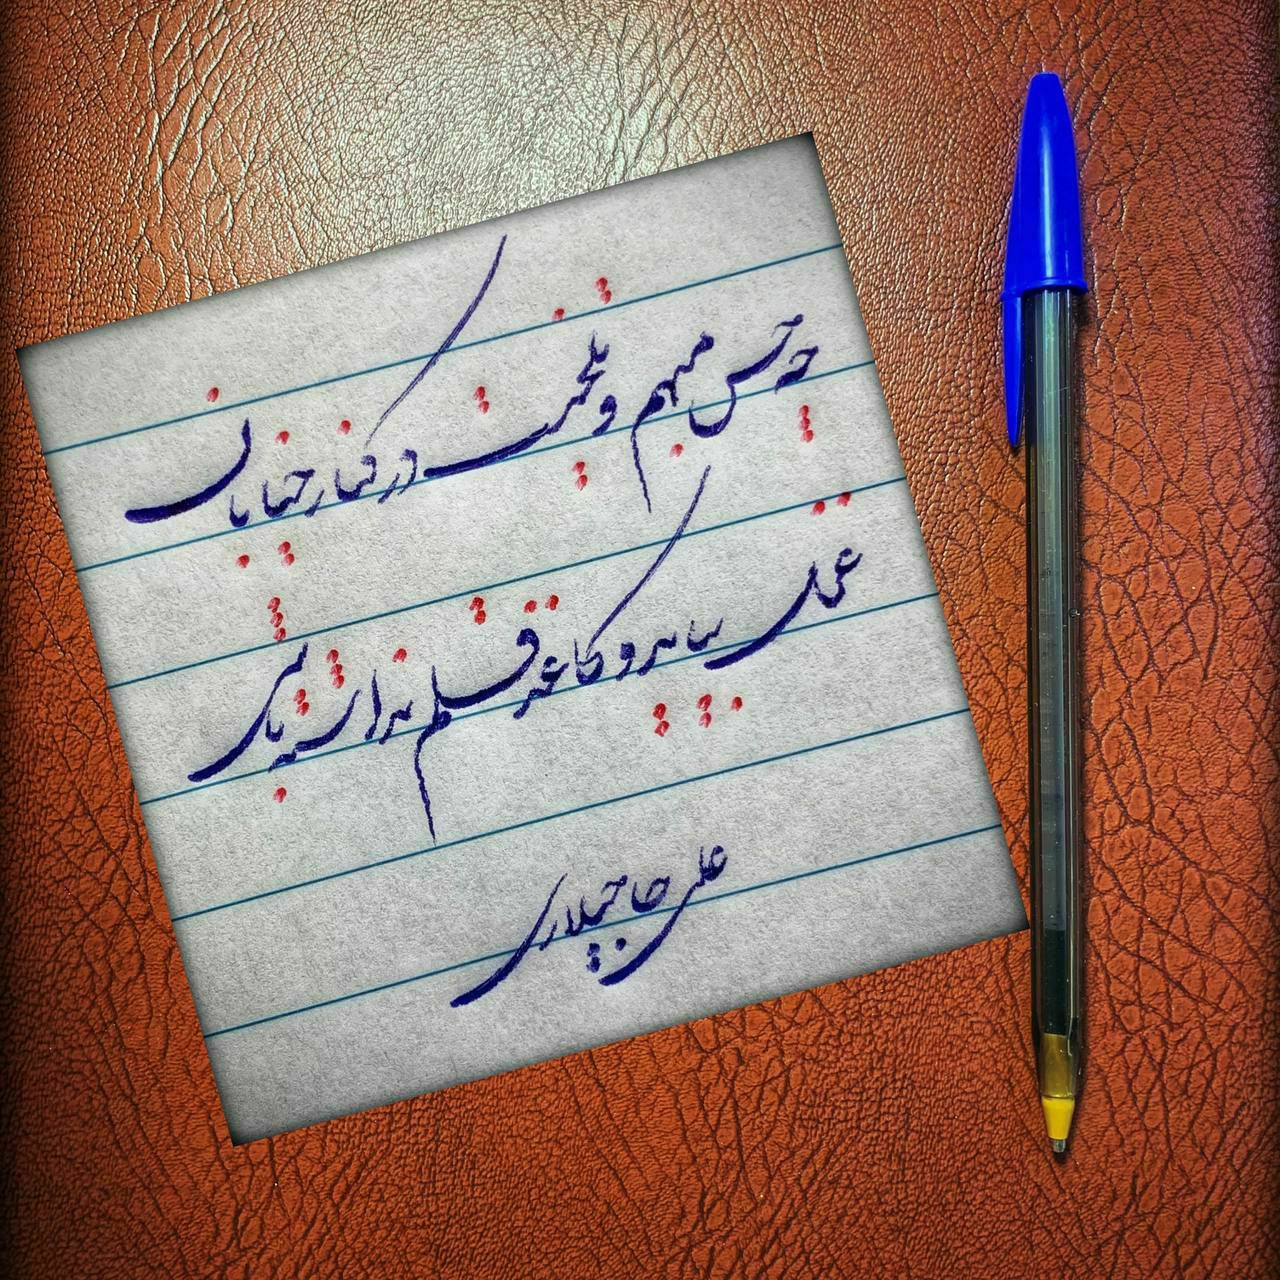 چه حس مبهم و تلخیست در کنار خیابان
غزل بیاید و کاغذ قلم نداشته باشی
علی حاجیلاری